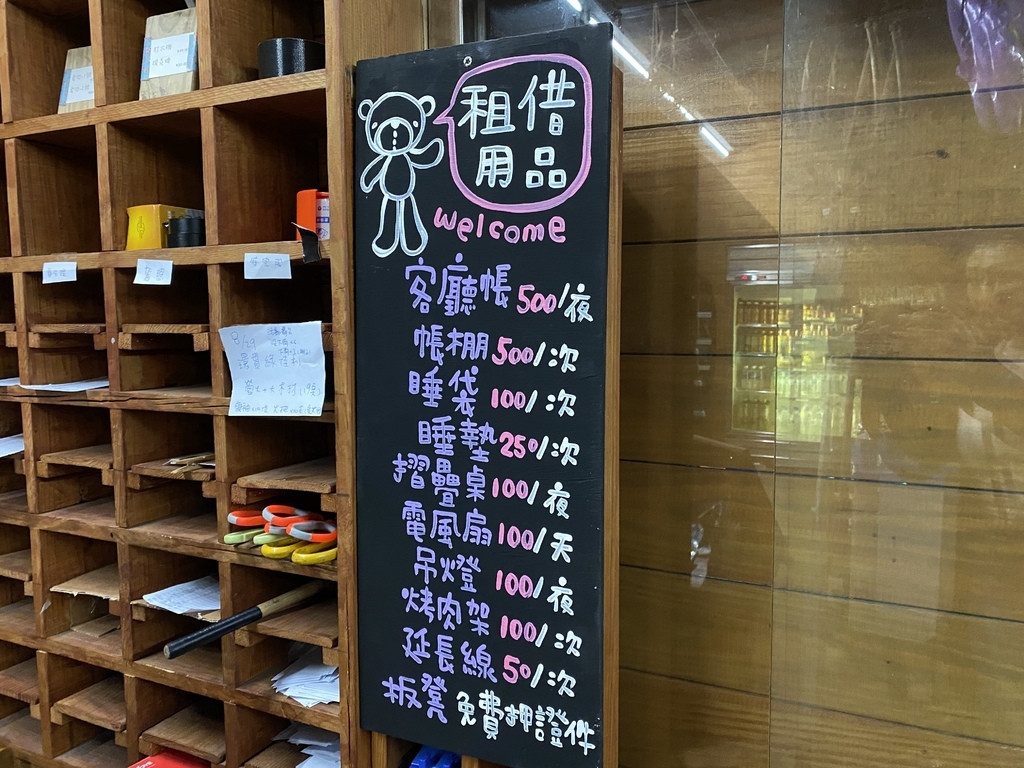 租借
用品
welcome
客廳帳 500/夜
帳棚 500/次
睡袋 100/次
睡墊 250/次
摺疊桌 100/夜
電風扇 100/天
吊燈 100/夜
烤肉架 100/次
延長線 50/次
板凳 免費押證件
8/29